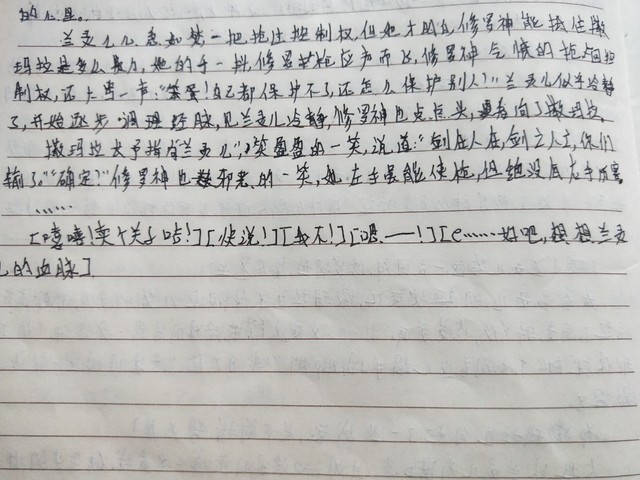 的心思。
兰灵儿忽如梦一把抢过控制权,但她才明白,修罗神能抵住撒
玛拉是多么暴力,她的手一抖,修罗枪应声而飞,修罗神气愤的抢回控
制权,还大骂一声:"笨蛋!自己都保护不了,还怎么保护别人?"兰灵儿似乎冷静
了,开始逐步调理经脉,见兰灵儿冷静,修罗神也点点头,看向了撒玛拉。
撒玛拉太子指背兰灵儿,笑盈盈的一笑,说道:"剑在人在,剑亡人亡,你们
输了。""确定?"修罗神也邪恶的一笑,她左手虽能使枪,但绝没有右手厉害。
……
[嘻嘻!卖个关子咕!][快说!][我不!][嗯——!][e……好吧,想想兰灵
儿的血脉]